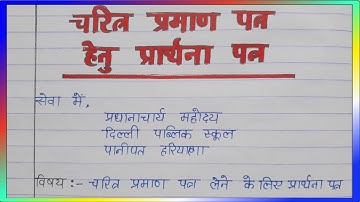 चरित्र प्रमाण पत्र
हेतु प्रार्थना पत्र
सेवा में,
प्रधानाचार्य महोदय
दिल्ली पब्लिक स्कूल
पानीपत हरियाणा
विषय :- चरित्र प्रमाण पत्र लेने के लिए प्रार्थना पत्र